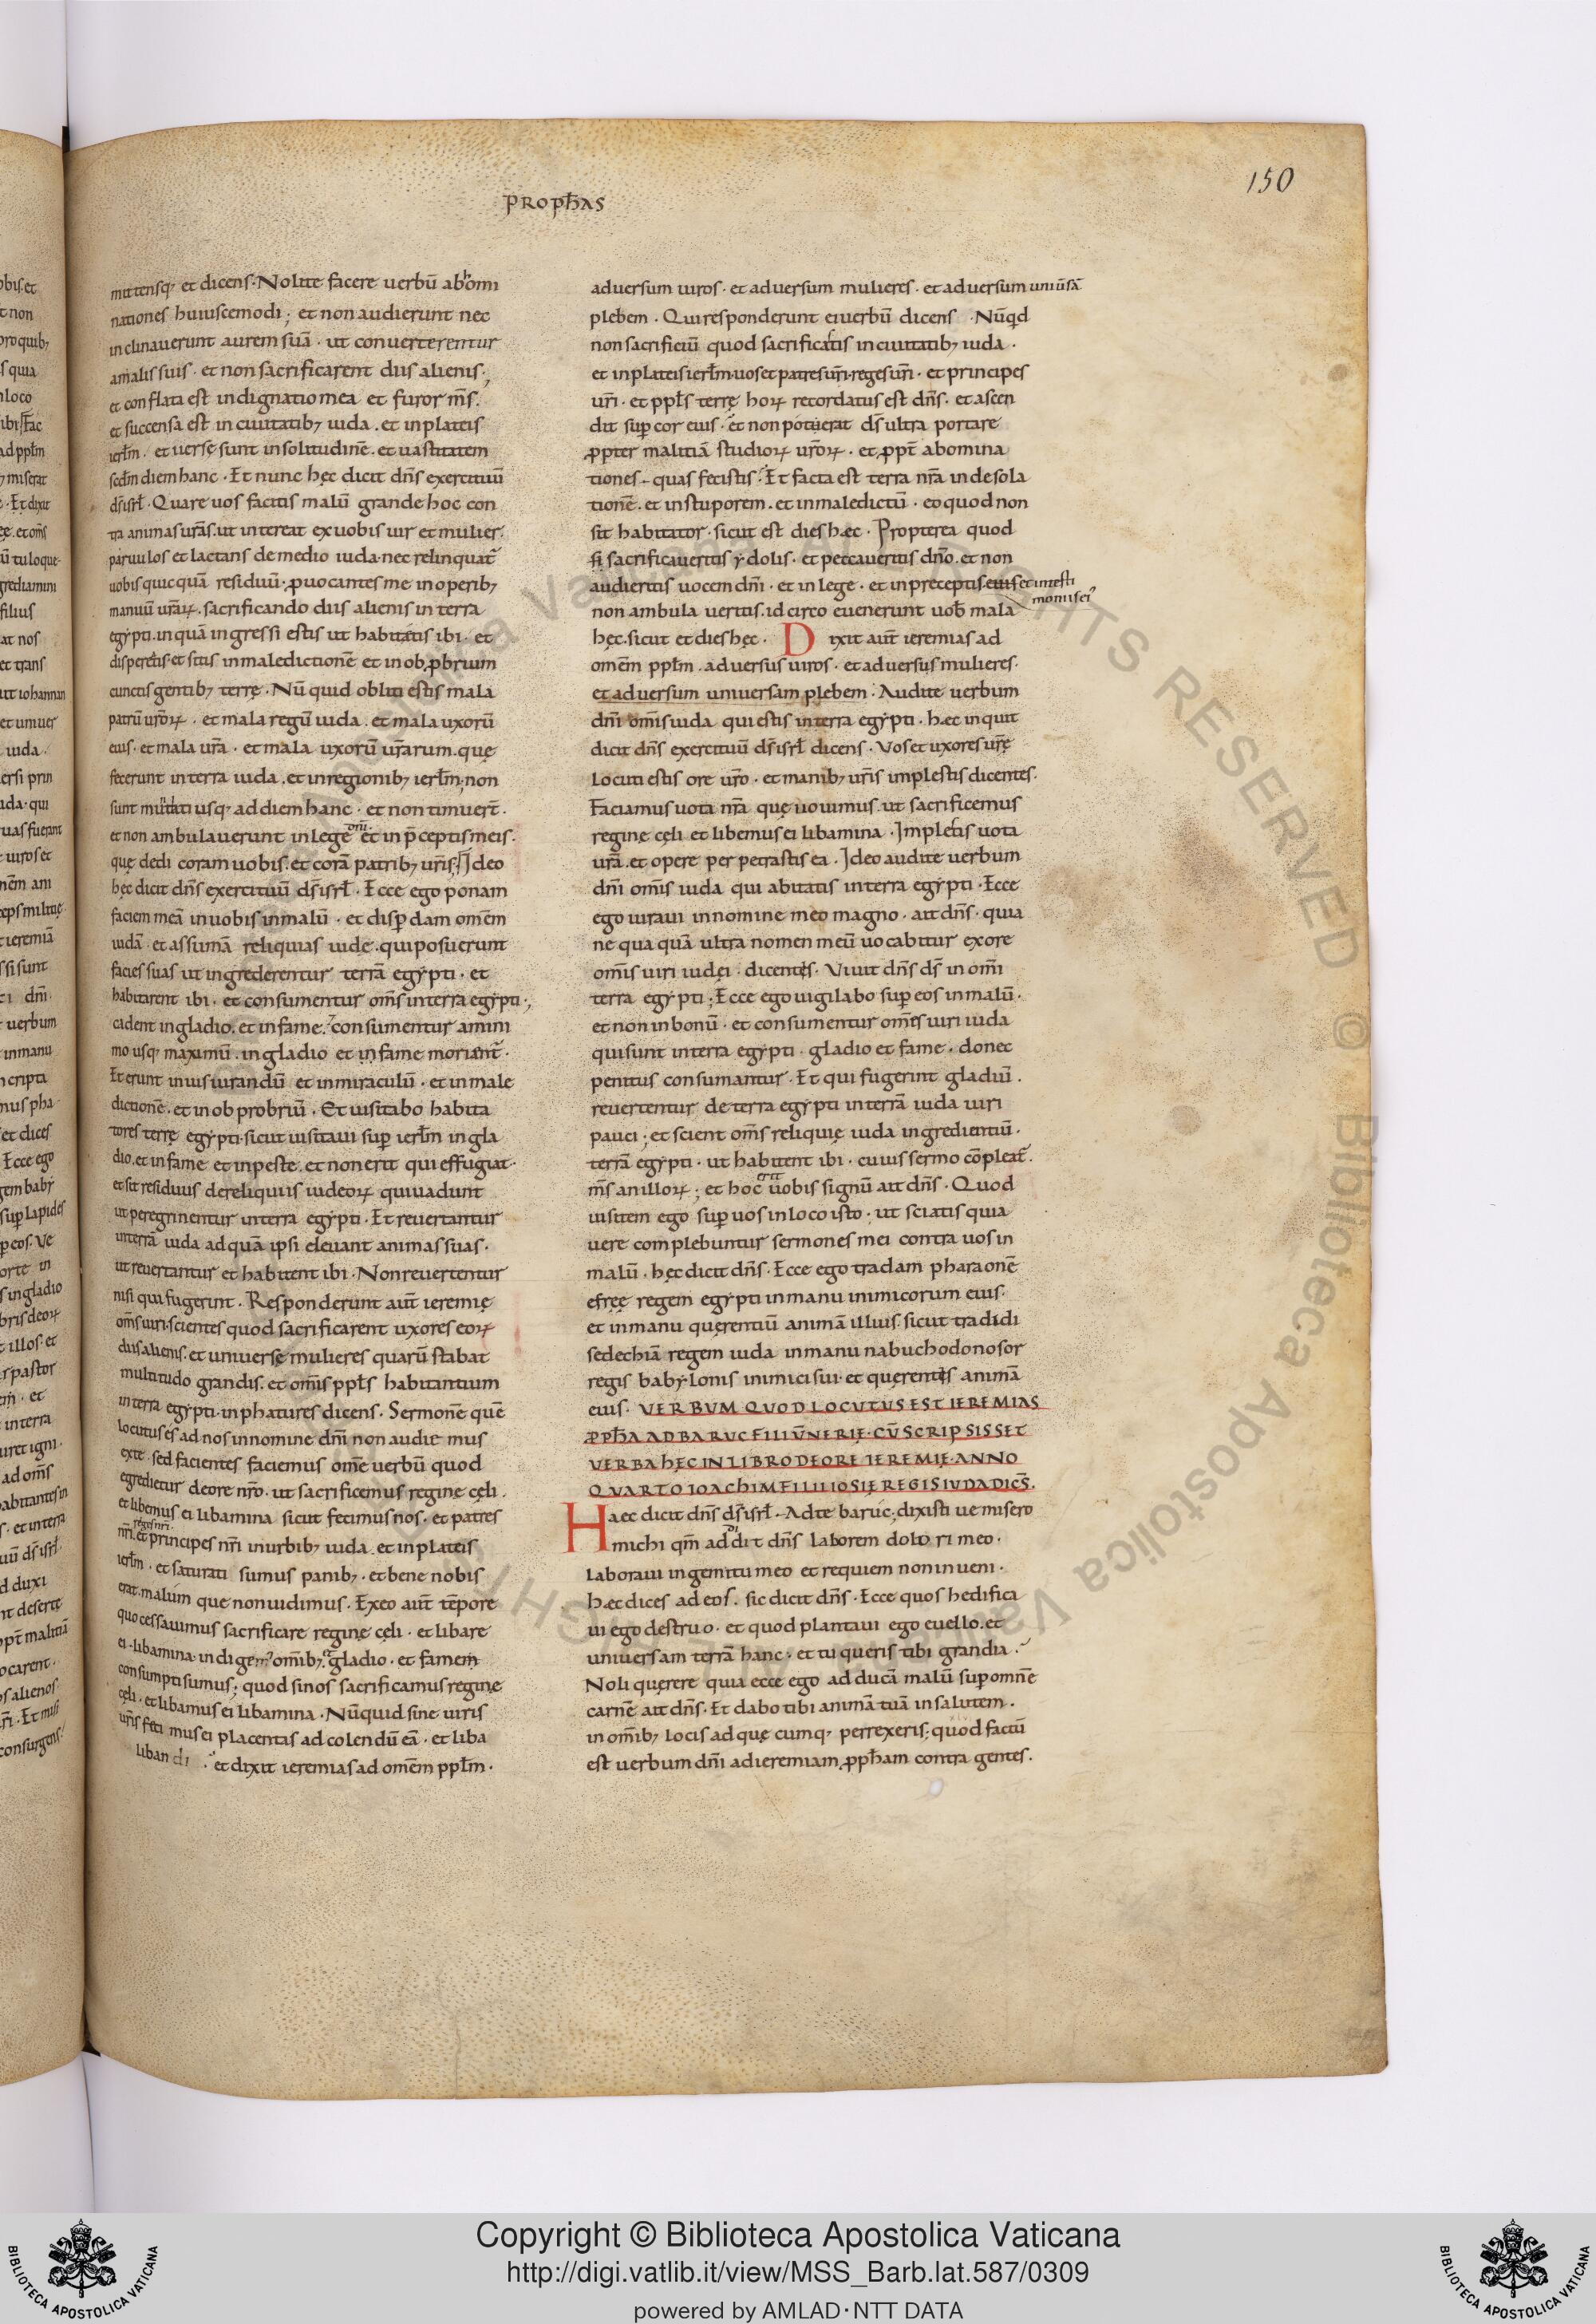 ꝓpħas
150
mittensq; et dicens. Nolite facere uerbū abhomi
nationes huiuscemodi; et non audierunt nec
inclinauerunt aurem suā. ut conuerterentur
a malis suis. et non sacrificarent diis alienis;
et conflata est indignatio mea et furor m̄s.
et succensa est in ciuitatib; iuda. et in plateis
ierl̄m. et uersę sunt in solitudinē. et uastitatem
scdm̄ diem hanc. Et nunc hęc dicit dn̄s exercituū
ds̄ isrl̄. Quare uos facitis malū grande hoc con
tra animas urās. ut intereat ex uobis uir et mulier.
paruulos et lactans de medio iuda. nec relinquat̄
uobis quicquā residuū. ꝓuocantes me in operib;
manuū urāꝝ. sacrificando diis alienis in terra
egẏpti. in quā ingressi estis ut habitatis ibi. et
disperetis. et sitis in maledictionē et in obꝓbrium
cunctis gentib; terrę. Nū quid obliti estis mala
patrū urōꝝ. et mala regū iuda. et mala uxorū
eius. et mala urā. et mala uxorū urārum. quę
fecerunt in terra iuda. et in regionib; ierl̄m; non
sunt mundati usq; ad diem hanc. et non timuert̄.
et non ambulauerunt in lege dn̄i. et in p̄ceptis meis.
quę dedi coram uobis. et corā patrib; ur̄is. Ideo
hęc dicit dn̄s exercituū ds̄ isrl̄. Ecce ego ponam
faciem meā in uobis in malū. et disꝑdam omēm
iudā. et assumā reliquias iudę. qui posuerunt
facies suas ut ingrederentur terrā egẏpti. et
habitarent ibi. et consumentur om̄s in terra egẏpti.;
cadent in gladio. et in fame. consumentur a mini
mo usq; maximū. in gladio et in fame morient̄.
Et erunt in iusiurandū et in miraculū. et in male
dictionē. et in obprobriū. Et uisitabo habita
tores terrę egẏpti. sicut uisitaui suꝑ ierl̄m in gla
dio. et in fame et in peste. et non erit qui effugiat.
et sit residuus de reliquiis iudeoꝝ qui uadunt
ut peregrinentur in terra egẏpti. Et reuertantur
in terrā iuda ad quā ipsi eleuant animas suas.
ut reuertantur et habitent ibi. Non reuertentur
nisi qui fugerint. Responderunt aut̄ ieremię
om̄s uiri. scientes quod sacrificarent uxores eoꝝ
diis alienis. et uniuersę mulieres quarū stabat
multitudo grandis. et om̄is ppl̄s habitantium
in terra egẏpti. in phatures dicens. Sermonē quē
locutus es ad nos in nomine dn̄i non audiemus
ex te. sed facientes faciemus omē uerbū quod
egredietur de ore nr̄o. ut sacrificemus reginę cęli.
et libemus ei libamina sicut fecimus nos. et patres
nr̄i. reges nr̄i. et principes nr̄i in urbib; iuda. et in plateis
ierl̄m. et saturati sumus panib;. et bene nobis
erat. malum que non uidimus. Exeo aut̄ tēpore
quo cessauimus sacrificare reginę cęli. et libare
ei. libamina. indigem; omīb; et gladio. et famem
consumpti sumus; quod si nos sacrificamus reginę
cęli. et libamus ei libamina. Nūquid sine uiris
ur̄is fecimus ei placentas ad colendū eā. et liba
libandi. et dixit ieremias ad omēm ppl̄m.
aduersum uiros. et aduersum mulieres. et aduersum uniūsā
plebem. Qui responderunt ei uerbū dicens. Nūqd
non sacrificiū quod sacrificatis in ciuitatib; iuda.
et in plateis ierl̄m. uos et patres ur̄i. reges ur̄i. et principes
ur̄i. et ppl̄s terrę hoꝝ recordatus est dn̄s. et ascen
dit suꝑ cor eius. et non potuerat ds̄ ultra portare
ꝓpter malitiā studioꝝ ur̄oꝝ. et ꝓpt̄ abomina
tiones. quas fecistis. Et facta est terra nr̄a in desola
tionē. et in stuporem. et in maledictū. eo quod non
sit habitator. sicut est dies hæc. Propterea quod
si sacrificauertis ẏdolis. et peccauertis dn̄o. et non
audiertis uocem dn̄i. et in lege. et in preceptis. eius et in testi
moniis ei;
non ambulauertis. id circo euenerunt uob̄ mala
hęc. sicut et dies hęc. Dixit aut̄ ieremias ad
omēm ppl̄m. aduersus uiros. et aduersus mulieres.
et aduersum uniuersam plebem. Audite uerbum
dn̄i om̄is iuda qui estis in terra egẏpti. hæc inquit
dicit dn̄s exercituū ds̄ isrl̄ dicens. Vos et uxores ur̄ę
locuti estis ore ur̄o. et manib; ur̄is implestis dicentes.
Faciamus uota nr̄a quę uouimus. ut sacrificemus
reginę cęli et libemus ei libamina. Impletis uota
ur̄a. et opere perpetrastis ea. Ideo audite uerbum
dn̄i om̄is iuda qui abitatis in terra egẏpti. Ecce
ego iuraui in nomine meo magno. ait dn̄s. quia
ne qua quā ultra nomen meū uocabitur ex ore
om̄is uiri iudęi. dicentęs. Viuit dn̄s ds̄ in omi̅
terra egẏpti; Ecce ego uigilabo suꝑ eos in malū.
et non in bonū. et consumentur omēs uiri iuda
qui sunt in terra egẏpti. gladio et fame. donec
penitus consumantur. Et qui fugerint gladiū.
reuertentur de terra egẏpti in terrā iuda uiri
pauci; et scient om̄s reliquię iuda ingredientiū.
terrā egẏpti. ut habitent ibi. cuius sermo cōpleat̄.
m̄s an illoꝝ; et hoc erit uobis signū ait dn̄s. Quod
uisitem ego suꝑ uos in loco isto. ut sciatis quia
uere complebuntur sermones mei contra uos in
malū. hęc dicit dn̄s. Ecce ego tradam pharaonē
efreę regem egẏpti in manu inimicorum eius.
et in manu querentiū animā illius. sicut tradidi
sedechiā regem iuda in manu nabuchodonosor
regis babẏlonis inimici sui. et querentis animā
eius. VERBVM QVOD LOCVTUS EST IEREMIAS
ꝓpħa AD BARVC FILIŪ NERIĘ. CŪ SCRIPSISSET
VERBA hĘC IN LIBRO DE ORE IEREMIĘ. ANNO
QVARTO IOAChIM FILII IOSIĘ REGIS IVDA DICĒS.
Haec dicit dn̄s ds̄ isrl̄. Ad te baruc; dixisti ue misero
michi qm̄ addidit dn̄s laborem dolori meo.
Laboraui in gemitu meo et requiem non inueni.
hæc dices ad eos. sic dicit dn̄s. Ecce quos hedifica
ui ego destruo. et quod plantaui ego euello. et
uniuersam terrā hanc. et tu queris tibi grandia.
Noli querere quia ecce ego adducā malū sup omnē
carnē ait dn̄s. Et dabo tibi animā tuā in salutem.
in omīb; locis ad quę cumq; perrexeris; quod factū
est uerbum dn̄i ad ieremiam ꝓpħam contra gentes.
Copyright © Biblioteca Apostolica Vaticana
http://digi.vatlib.it/view/MSS_Barb.lat.587/0309
powered by AMLAD·NTT DATA
BIBLIOTECA APOSTOLICA VATICANA
BIBLIOTECA APOSTOLICA VATICANA